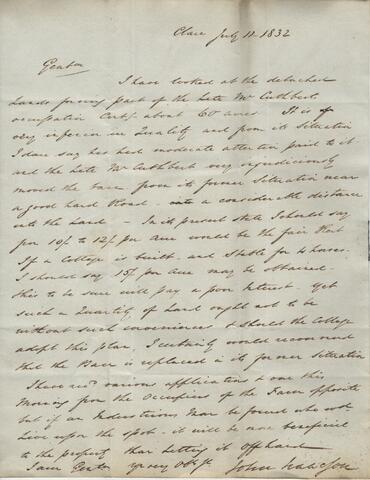 Clare July 11. 1832
Gentn
I have looked at the detached
Lands forming part of the Late Mr Cuthberts
occupation Cont.g about 60 acres. It is of
very inferior in Quality and from its Situation
I dare say has had moderate attention paid to it
and the Late Mr Cuthbert very injudiciously
moved the Barn from its former Situation near
a good hard Road - a considerable distance
into the Land - In its present state I should say
from 10/- to 12/- per Acre would be the fair Rent
If a Cottage is built and Stable for 4 horses
I should say 15/- per Acre may be obtained.
this to be sure will pay a poor Interest. Yet
such a Quantity of Land ought not to be
without such conveniences & should the College
adopt this plan, I certainly would recommend
that the Barn is replaced in its former Situation
I have recd various applications & one this
Morning from the Occupiers of the Farm opposite
but if an Industrious Man be found who wd
live upon the spot - it will be more beneficial
to the property than letting it offhand
I am Gentn yr very Obt St John